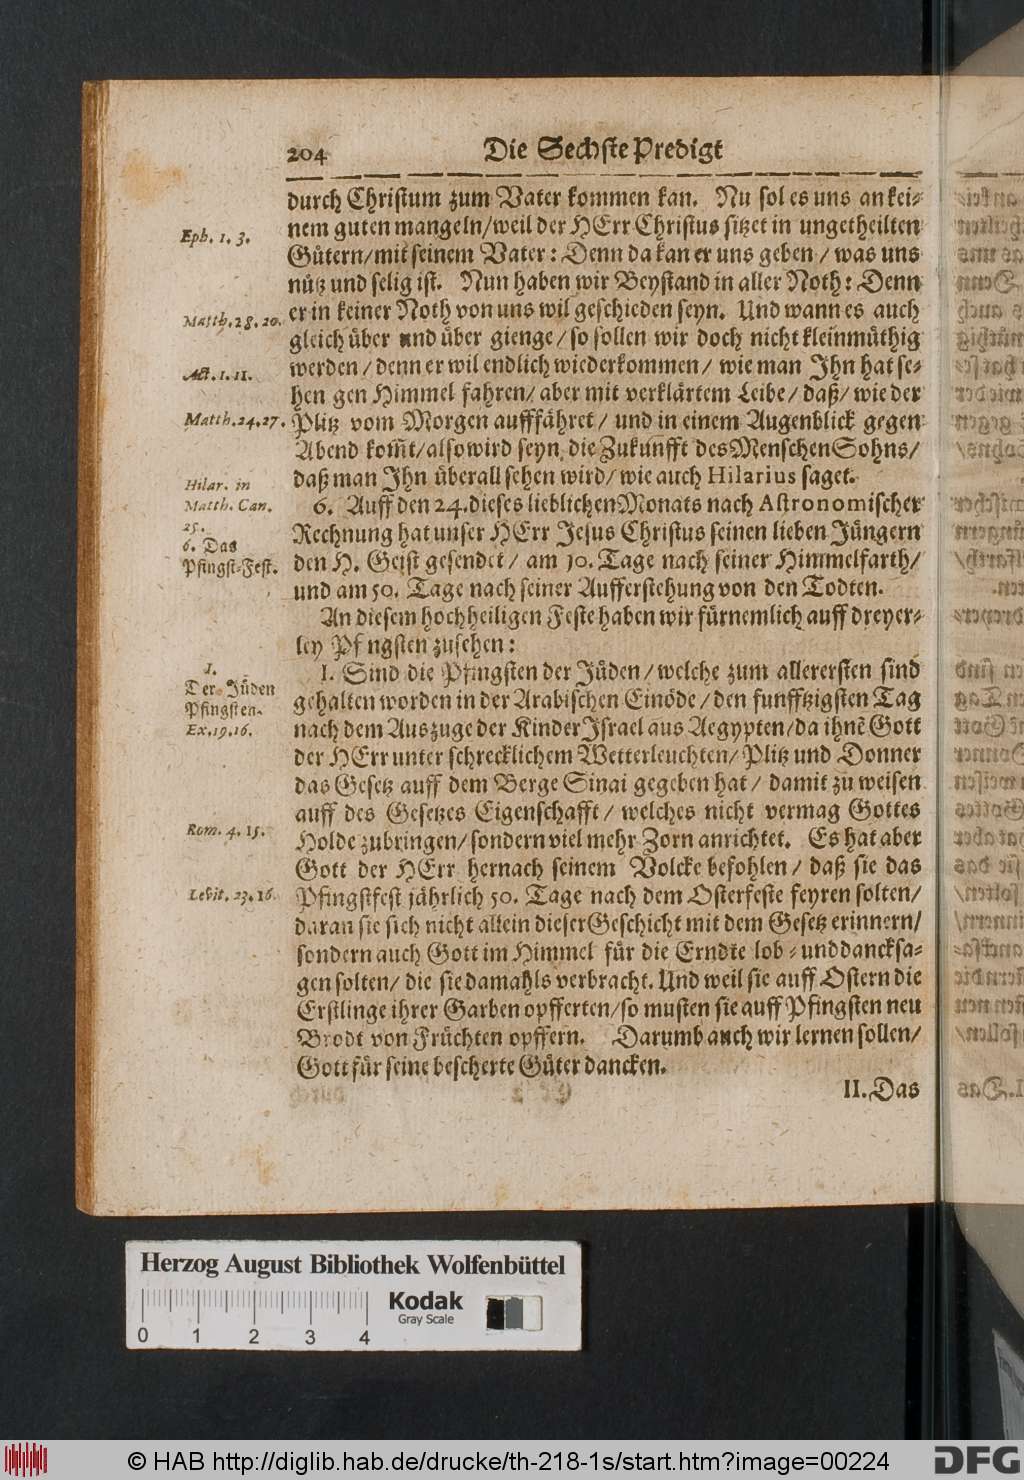 204 Die Sechste Predigt
durch Christum zum Vater kommen kan. Nu sol es uns an kei-
nem guten mangeln/weil der HErr Christus sitzet in ungetheilten
Eph. 1. 3.
Gütern/mit seinem Vater: Denn da kan er uns geben/was uns
nütz und selig ist. Nun haben wir Beystand in aller Noth: Denn
Matth. 28. 20.
er in keiner Noth von uns wil geschieden seyn. Und wann es auch
gleich über und über gienge/so sollen wir doch nicht kleinmüthig
Act. 1. 11.
werden/denn er wil endlich wiederkommen/wie man Ihn hat se-
hen gen Himmel fahren/aber mit verklärtem Leibe/daß/wie der
Matth. 24. 27.
Plitz vom Morgen aufffähret/und in einem Augenblick gegen
Abend kom̃t/also wird seyn die Zukunfft des Menschen Sohns/
Hilar. in
Matth. Can.
25.
daß man Ihn überall sehen wird/wie auch Hilarius saget.
6. Das
Pfingst-Fest.
6. Auff den 24. dieses lieblichen Monats nach Astronomischer
Rechnung hat unser HErr Jesus Christus seinen lieben Jüngern
den H. Geist gesendet/am 10. Tage nach seiner Himmelfarth/
und am 50. Tage nach seiner Aufferstehung von den Todten.
An diesem hochheiligen Feste haben wir fürnemlich auff dreyer-
ley Pfingsten zusehen:
1.
Der Jüden
Pfingsten.
I. Sind die Pfingsten der Jüden/welche zum allerersten sind
gehalten worden in der Arabischen Einöde/den funfftzigsten Tag
Ex. 19. 16.
nach dem Auszuge der Kinder Israel aus Aegypten/da ihnẽ Gott
der HErr unter schrecklichem Wetterleuchten/Plitz und Donner
das Gesetz auff dem Berge Sinai gegeben hat/damit zu weisen
auff des Gesetzes Eigenschafft/welches nicht vermag Gottes
Rom. 4. 15.
Holde zubringen/sondern viel mehr Zorn anrichtet. Es hat aber
Gott der HErr hernach seinem Volcke befohlen/daß sie das
Levit. 23. 16.
Pfingstfest jährlich 50. Tage nach dem Osterfeste feyren solten/
daran sie sich nicht allein dieser Geschicht mit dem Gesetz erinnern/
sondern auch Gott im Himmel für die Erndte lob- und dancksa-
gen solten/die sie damahls verbracht. Und weil sie auff Ostern die
Erstlinge ihrer Garben opfferten/so musten sie auff Pfingsten neu
Brodt von Früchten opffern. Darumb auch wir lernen sollen/
Gott für seine bescherte Güter dancken.
II. Das
Herzog August Bibliothek Wolfenbüttel
Kodak
Gray Scale
0 1 2 3 4
© HAB http://diglib.hab.de/drucke/th-218-1s/start.htm?image=00224
DFG